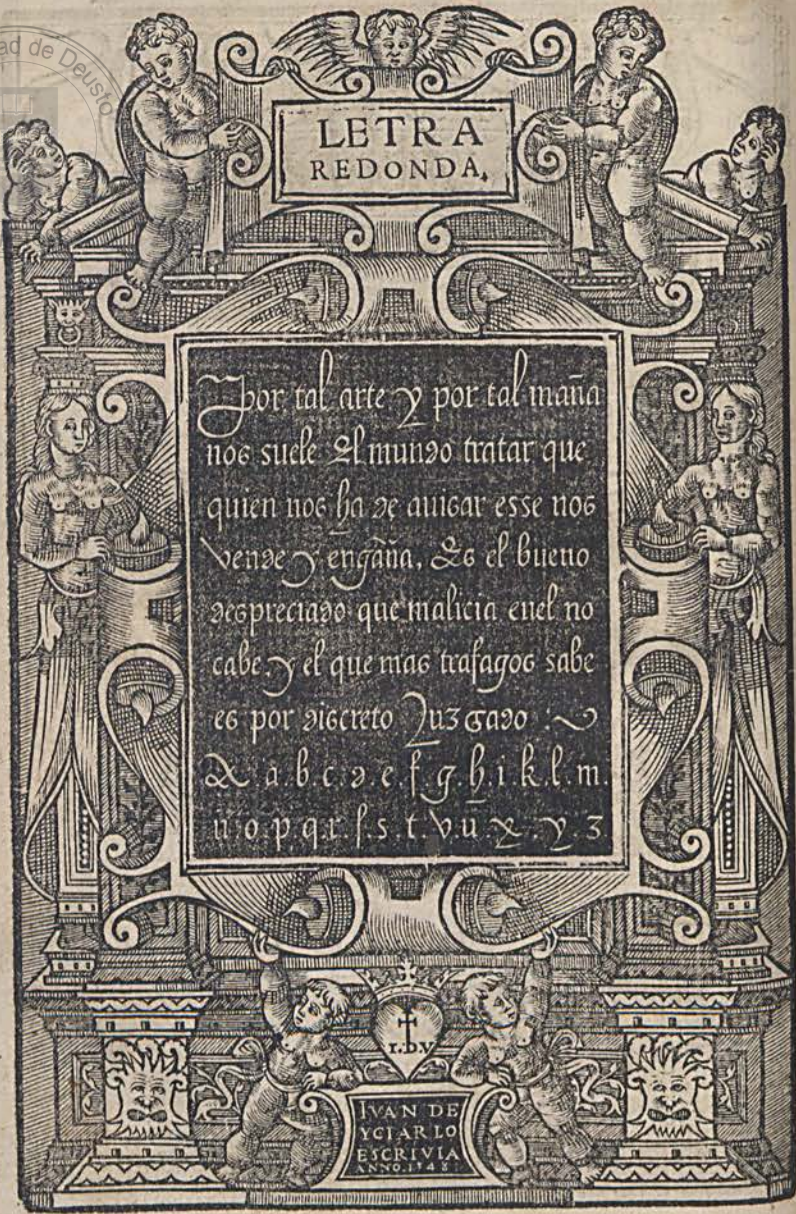 ad de Deusto
LETRA
REDONDA,
Por tal arte y por tal maña
nos suele El mundo tratar que
quien nos ha de auisar esse nos
vende y engaña, Es el bueno
despreciado que malicia enel no
cabe, y el que mas trafagos sabe
es por discreto Juzgado :~
A a.b.c.d.e.f.g.h.i.k.l.m.
n.o.p.q.r.ſ.s.t.v.u.x.y.z
I.D.V
IVAN DE
YCIAR LO
ESCRIVIA
ANNO.1548